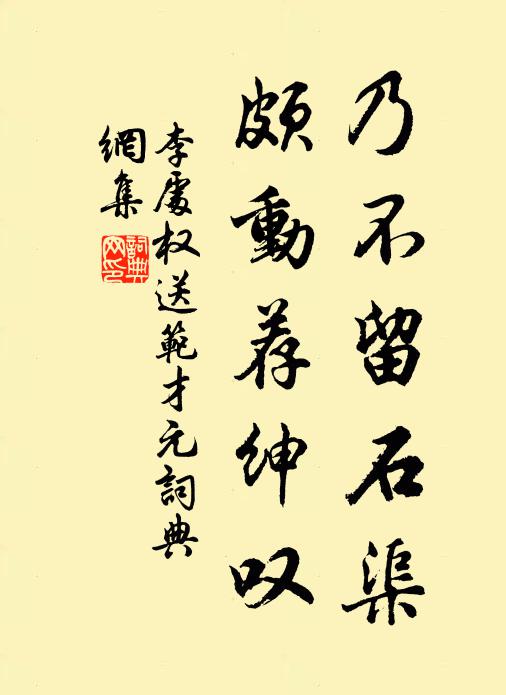 乃不留石渠
頗動荐紳叹
李處权送範才元詞典
網集
詞典網印